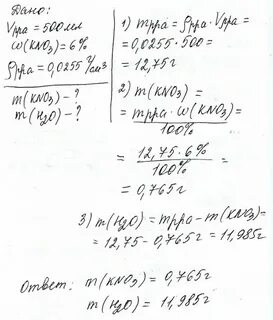 Дано:
Vрра = 500мл
ω(KNO3) = 6%
ρрра = 0,0255 г/см³
m(KNO3) - ?
m(H2O) - ?
1) mрра = ρрра · Vрра =
= 0,0255 · 500 =
= 12,75г
2) m(KNO3) =
= mрра · ω(KNO3)
100%
= 12,75 · 6%
100%
= 0,765г
3) m(H2O) = mрра - m(KNO3) =
= 12,75 - 0,765г = 11,985г
Ответ: m(KNO3) = 0,765г
m(H2O) = 11,985г